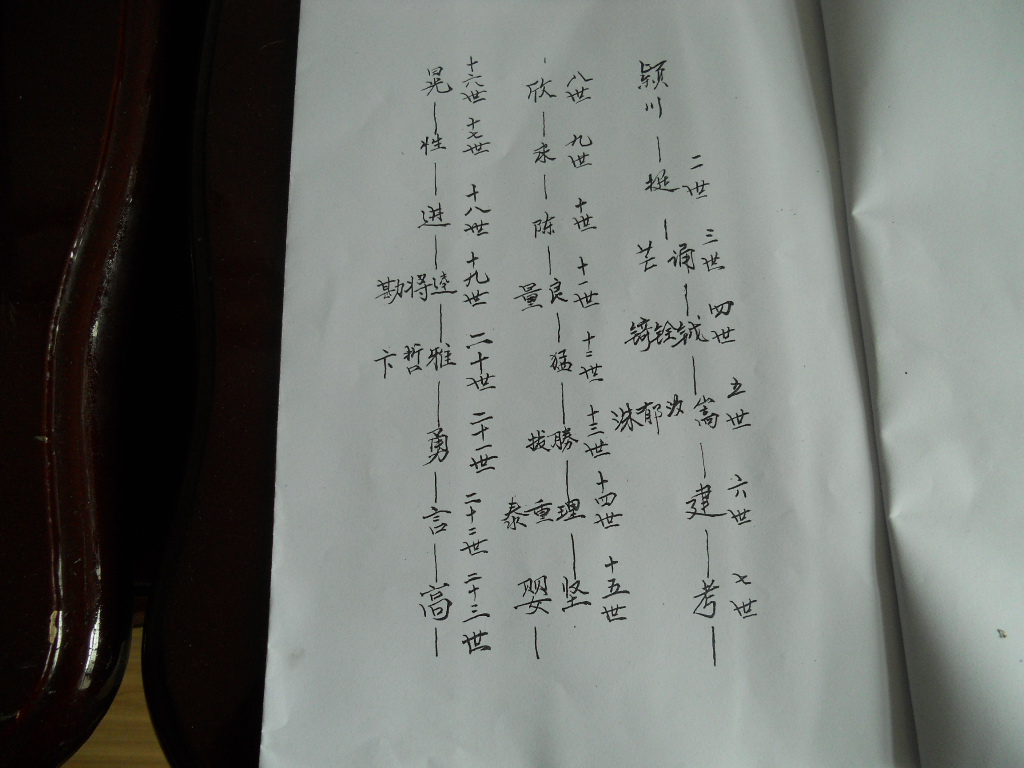 二世 三世 四世 五世 六世 七世
颖川—挺—诵—钺—嵩—建—考—
芒 铨 汝
锜 郁
洙
八世 九世 十世 十一世 十二世 十三世 十四世 十五世
欣——陈—良—猛—勝—理—坚
量 拔 重 婴—
泰
十六世 十七世 十八世 十九世 二十世 二十一世 二十二世 二十三世
晃—性—进—逵—雅—勇—言—高—
得 哲
勘 卞